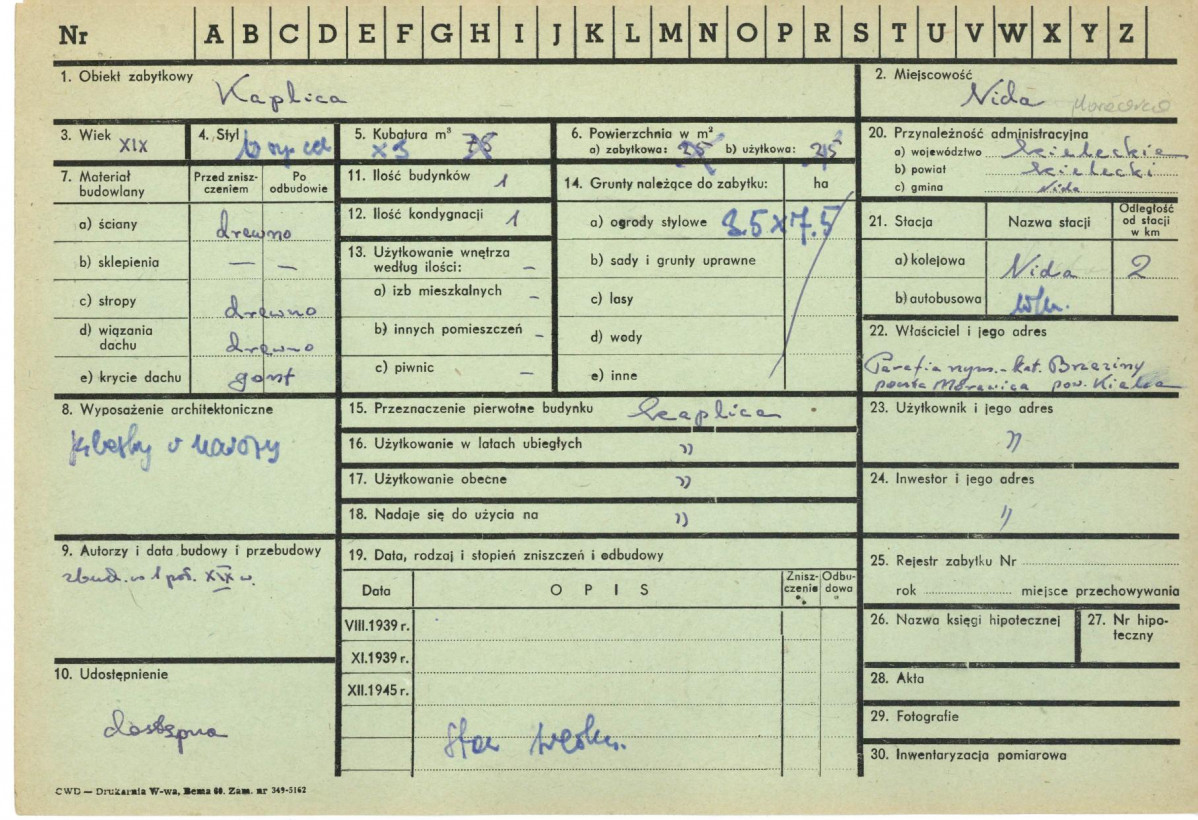 Nr A B C D E F G H I J K L M N O P R S T U V W X Y Z
1. Obiekt zabytkowy
Kaplica
2. Miejscowość
Nida
3. Wiek XIX
4. Styl
5. Kubatura m³
6. Powierzchnia w m²
a) zabytkowa: 25 b) użytkowa:
20. Przynależność administracyjna
a) województwo kieleckie
b) powiat kielecki
c) gmina Nida
7. Materiał budowlany
Przed zniszczeniem
Po odbudowie
a) ściany drewno
b) sklepienia — —
c) stropy drewno
d) wiązania dachu drewno
e) krycie dachu gont
11. Ilość budynków 1
12. Ilość kondygnacji 1
13. Użytkowanie wnętrza według ilości: –
a) izb mieszkalnych –
b) innych pomieszczeń –
c) piwnic –
14. Grunty należące do zabytku: ha
a) ogrody stylowe 8.5 x 7.5
b) sady i grunty uprawne
c) lasy
d) wody
e) inne
21. Stacja
Nazwa stacji
Odległość od stacji w km
a) kolejowa Nida 2
b) autobusowa
22. Właściciel i jego adres
Parafia rzym.-kat. Brzeziny
poczta Morawica pow. Kielce
8. Wyposażenie architektoniczne
15. Przeznaczenie pierwotne budynku kaplica
16. Użytkowanie w latach ubiegłych "
17. Użytkowanie obecne "
18. Nadaje się do użycia na "
23. Użytkownik i jego adres
"
24. Inwestor i jego adres
"
9. Autorzy i data budowy i przebudowy
zbud. w 1 poł. XIX w.
19. Data, rodzaj i stopień zniszczeń i odbudowy
Data
OPIS
Zniszczenie %
Odbudowa "
VIII.1939 r.
XI.1939 r.
XII.1945 r.
25. Rejestr zabytku Nr
rok miejsce przechowywania
26. Nazwa księgi hipotecznej
27. Nr hipoteczny
10. Udostępnienie
dostępna
28. Akta
29. Fotografie
30. Inwentaryzacja pomiarowa
CWD — Drukarnia W-wa, Bema 60. Zam. nr 349-5162